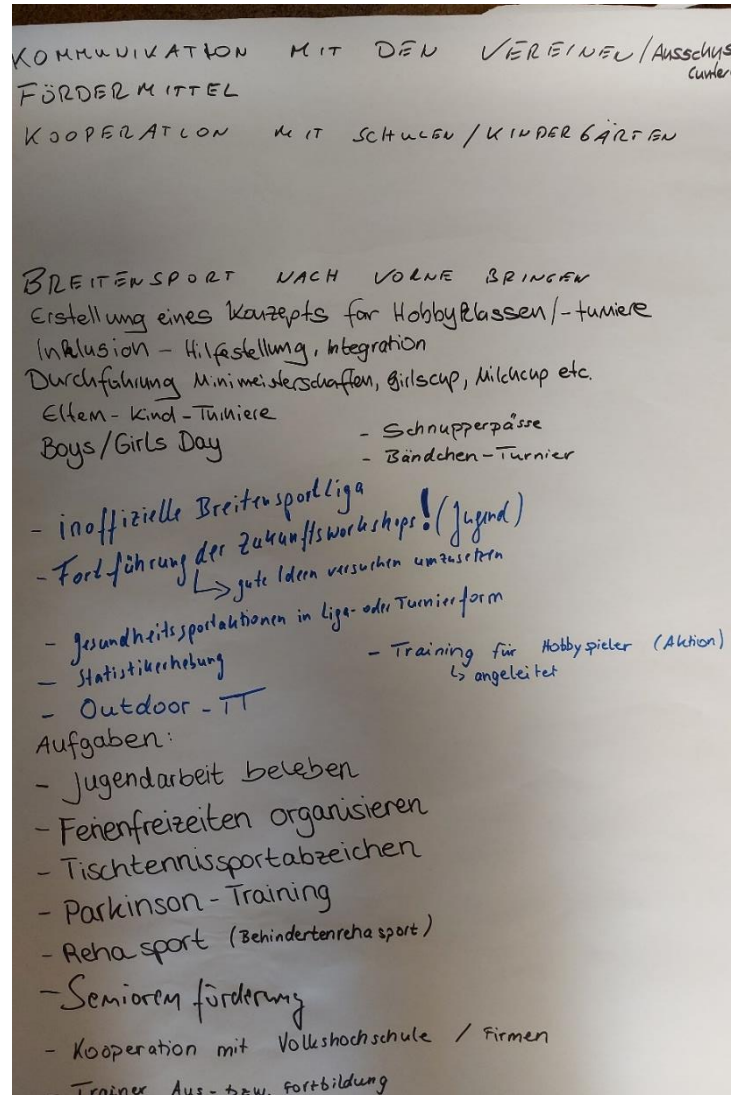 KOMMUNIKATION MIT DEN VEREINEN/Ausschus
FÖRDERMITTEL
KOOPERATION MIT SCHULEN/KINDERGÄRTEN
BREITENSPORT NACH VORNE BRINGEN
Erstellung eines Konzepts for Hobbyklassen/-turniere
Inklusion - Hilfestellung, Integration
Durchführung Minimeisterschaften, Girlscup, Milchcup etc.
Eltern-Kind-Turniere
Boys/Girls Day
- Schnupperpässe
- Bändchen-Turnier
- inoffizielle Breitensportliga
- Fortführung der Zukunftsworkshops! (Jugend)
↳ gute Ideen versuchen umzusetzen
- gesundheitssportaktionen in Liga- oder Turnierform
- Statistikerhebung
- Training für Hobbyspieler (Aktion)
↳ angeleitet
- Outdoor-TT
Aufgaben:
- Jugendarbeit beleben
- Ferienfreizeiten organisieren
- Tischtennissportabzeichen
- Parkinson-Training
- Rehasport (Behindertenrehasport)
- Senioren förderung
- Kooperation mit Volkshochschule / Firmen
- Trainer Aus- bzw. Fortbildung